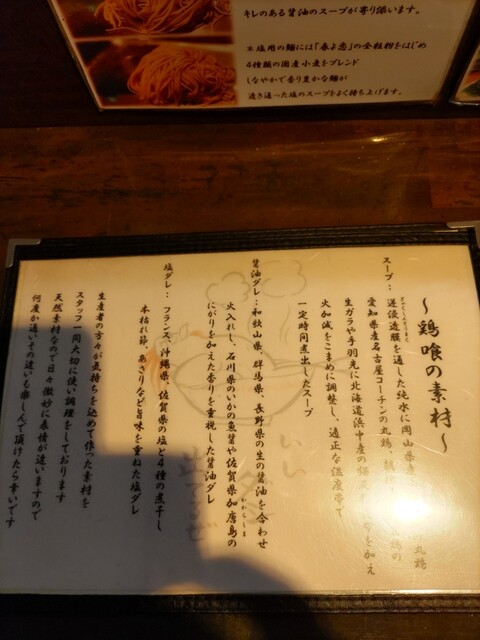 キレのある醤油のスープが寄り添います。
※塩用の麺には「春よ恋」の全粒粉をはじめ
4種類の国産小麦をブレンド
しなやかで香り豊かな麺が
透き通った塩のスープをよく持ち上げます。
〜鶏喰の素材〜
スープ：逆浸透膜を通した純水に岡山県産の丸鶏
愛知県産名古屋コーチンの丸鶏、鶏の
生ガラや手羽先に北海道浜中産の を加え
火加減をこまめに調整し、適正な温度帯で
一定時間煮出したスープ
醤油ダレ：和歌山県、群馬県、長野県の生の醤油を合わせ
火入れし、石川県のいかの魚醤や佐賀県加唐島の
にがりを加えた香りを重視した醤油ダレ
塩ダレ：フランス、沖縄県、佐賀県の塩と4種の煮干し
本枯れ節、あさりなど旨味を重ねた塩ダレ
生産者の方々が気持ちを込めて作った素材を
スタッフ一同大切に使い調理をしております
天然素材なので日々微妙に表情が違いますので
何度か違いその違いも楽しんで頂けたら幸いです